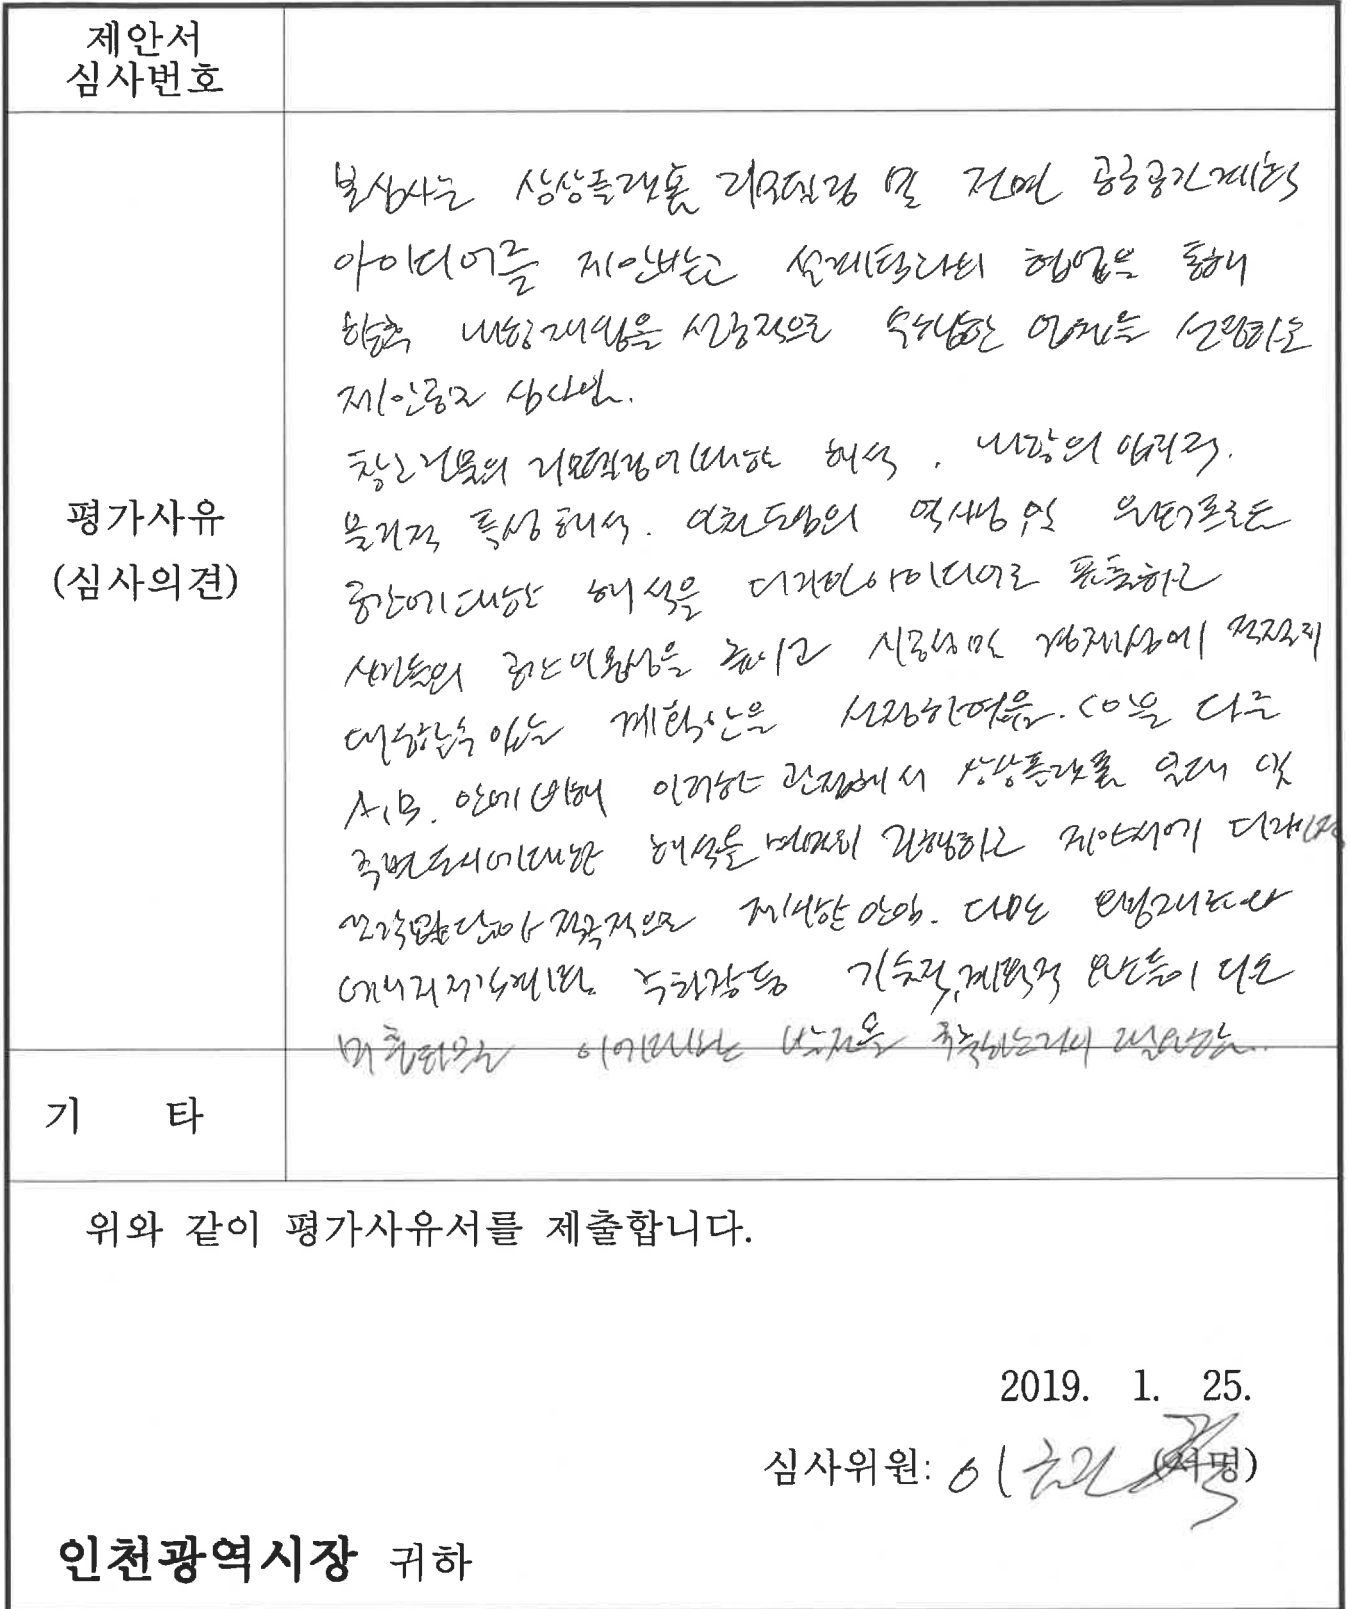 제안서
심사번호
평가사유
(심사의견)
본심사는 상상플랫폼 리모델링 및 전면 공공공간계획
아이디어를 제안받고 설계팀과의 협업을 통해
향후 내항재생을 성공적으로 수행할 업체를 선정하는
제안공모 심사임.
창고건물의 리모델링에대한 해석, 내항의 입지적,
물리적 특성해석, 인천도심의 역사성 및 워터프론트
공간에대한 해석을 디자인아이디어로 표출하고
시민들의 공간이용성을 높이고 시공성및 경제성에 적절히
대응할수있는 계획안을 선정하였음. C안은 다른
A, B. 안에비해 이러한 관점에서 상상플랫폼 일대 및
주변도시에대한 해석을 면밀히 진행하고 제안서에
적극적으로 제시한 안임. 다만
에너지 주차장등 기술적, 계획적 요소들이 다소
미흡 이에대한 발전을 필요함..
기 타
위와 같이 평가사유서를 제출합니다.
2019. 1. 25.
심사위원: 이 (서명)
인천광역시장 귀하